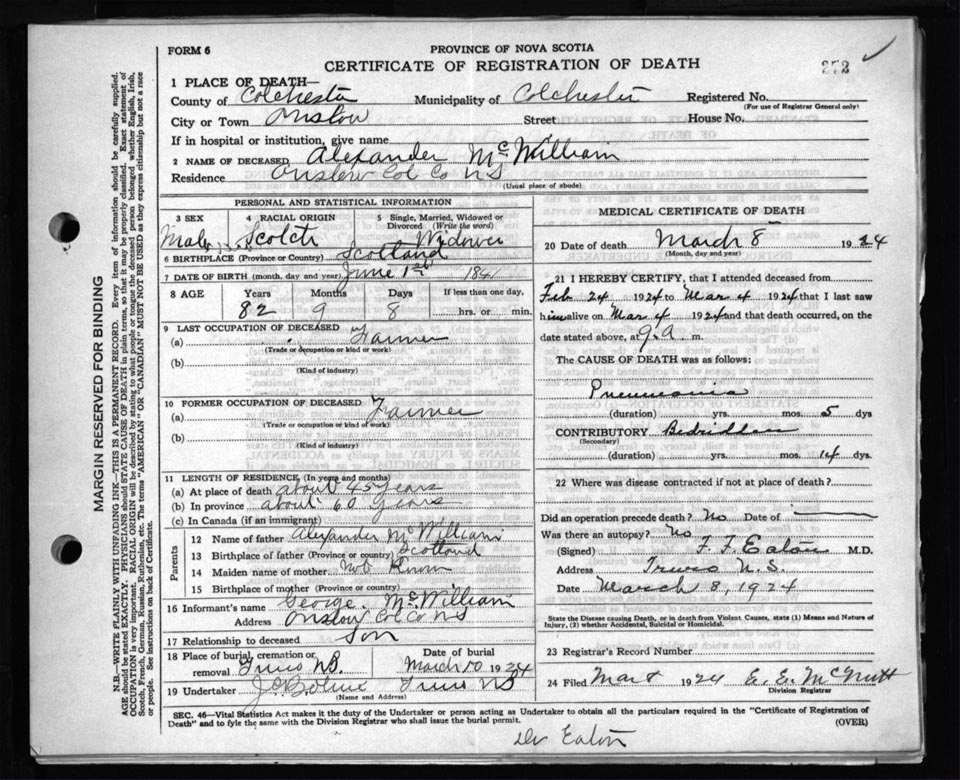 FORM 6
PROVINCE OF NOVA SCOTIA
CERTIFICATE OF REGISTRATION OF DEATH
252
1 PLACE OF DEATH—
County of Colchester Municipality of Colchester Registered No.
(For use of Registrar General only)
City or Town Onslow Street House No.
If in hospital or institution, give name
2 NAME OF DECEASED Alexander McWilliam
Residence Onslow Col Co NS
(Usual place of abode)
PERSONAL AND STATISTICAL INFORMATION
3 SEX 4 RACIAL ORIGIN 5 Single, Married, Widowed or Divorced (Write the word)
Male Scotch Widower
6 BIRTHPLACE (Province or Country) Scotland
7 DATE OF BIRTH (month, day and year) June 1st 1841
8 AGE Years Months Days If less than one day,
82 9 8 hrs. or min.
9 LAST OCCUPATION OF DECEASED
(a) Farmer
(Trade or occupation or kind or work)
(b)
(Kind of industry)
10 FORMER OCCUPATION OF DECEASED
(a) Farmer
(Trade or occupation or kind of work)
(b)
(Kind of industry)
11 LENGTH OF RESIDENCE (In years and months)
(a) At place of death about 45 years
(b) In province about 60 years
(c) In Canada (if an immigrant)
Parents
12 Name of father Alexander McWilliam
13 Birthplace of father (Province or country) Scotland
14 Maiden name of mother Not Known
15 Birthplace of mother (Province or country)
16 Informant's name George McWilliam
Address Onslow Col Co NS
17 Relationship to deceased Son
18 Place of burial, cremation or removal Truro NS. Date of burial March 10 1924
19 Undertaker Truro NS
(Name and Address)
MEDICAL CERTIFICATE OF DEATH
20 Date of death March 8 1924
(Month, day and year)
21 I HEREBY CERTIFY, that I attended deceased from
Feb 24 1924 to Mar 4 1924 that I last saw
him alive on Mar 4 1924 and that death occurred, on
date stated above, at 9.a m.
The CAUSE OF DEATH was as follows:
Pneumonia
(duration) yrs. mos. 5 dys
CONTRIBUTORY Bedridden
(Secondary)
(duration) yrs. mos. 14 dys.
22 Where was disease contracted if not at place of death?
Did an operation precede death? No Date of
Was there an autopsy? No
(Signed) F. F. Eaton M.D.
Address Truro N.S.
Date March 8, 1924
State the Disease causing Death, or in death from Violent Causes, state (1) Means and Nature of Injury, (2) whether Accidental, Suicidal or Homicidal.
23 Registrar's Record Number
24 Filed Mar 8 1924 E. E. McNutt
Division Registrar
SEC. 46—Vital Statistics Act makes it the duty of the Undertaker or person acting as Undertaker to obtain all the particulars required in the "Certificate of Registration of
Death" and to fyle the same with the Division Registrar who shall issue the burial permit.
(OVER)
Dr Eaton
MARGIN RESERVED FOR BINDING
N.B.—WRITE PLAINLY WITH UNFADING INK—THIS IS A PERMANENT RECORD. Every item of information should be carefully supplied.
AGE should be stated EXACTLY. PHYSICIANS should STATE CAUSE OF DEATH in plain terms, so that it may be properly classified. Exact statement of
OCCUPATION is very important. RACIAL ORIGIN will be described by stating to what people or tongue the deceased person belonged whether English, Irish,
Scotch, French, German, Russian, Ruthenian, etc. The terms "AMERICAN" OR "CANADIAN" MUST NOT BE USED as they express citizenship but not a race
or people. See instructions on back of Certificate.